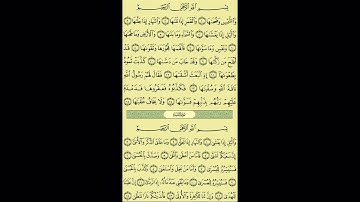 بِسْمِ اللَّهِ الرَّحْمَٰنِ الرَّحِيمِ
وَالشَّمْسِ وَضُحَاهَا ١ وَالْقَمَرِ إِذَا تَلَاهَا ٢ وَالنَّهَارِ إِذَا جَلَّاهَا ٣
وَاللَّيْلِ إِذَا يَغْشَاهَا ٤ وَالسَّمَاءِ وَمَا بَنَاهَا ٥ وَالْأَرْضِ وَمَا طَحَاهَا
٦ وَنَفْسٍ وَمَا سَوَّاهَا ٧ فَأَلْهَمَهَا فُجُورَهَا وَتَقْوَاهَا ٨ قَدْ
أَفْلَحَ مَن زَكَّاهَا ٩ وَقَدْ خَابَ مَن دَسَّاهَا ١٠ كَذَّبَتْ ثَمُودُ
بِطَغْوَاهَا ١١ إِذِ انبَعَثَ أَشْقَاهَا ١٢ فَقَالَ لَهُمْ رَسُولُ اللَّهِ
نَاقَةَ اللَّهِ وَسُقْيَاهَا ١٣ فَكَذَّبُوهُ فَعَقَرُوهَا فَدَمْدَمَ
عَلَيْهِمْ رَبُّهُم بِذَنبِهِمْ فَسَوَّاهَا ١٤ وَلَا يَخَافُ عُقْبَاهَا ١٥
بِسْمِ اللَّهِ الرَّحْمَٰنِ الرَّحِيمِ
وَاللَّيْلِ إِذَا يَغْشَىٰ ١ وَالنَّهَارِ إِذَا تَجَلَّىٰ ٢ وَمَا خَلَقَ الذَّكَرَ وَالْأُنثَىٰ
٣ إِنَّ سَعْيَكُمْ لَشَتَّىٰ ٤ فَأَمَّا مَنْ أَعْطَىٰ وَاتَّقَىٰ ٥ وَصَدَّقَ بِالْحُسْنَىٰ
٦ فَسَنُيَسِّرُهُ لِلْيُسْرَىٰ ٧ وَأَمَّا مَن بَخِلَ وَاسْتَغْنَىٰ ٨ وَكَذَّبَ بِالْحُسْنَىٰ
٩ فَسَنُيَسِّرُهُ لِلْعُسْرَىٰ ١٠ وَمَا يُغْنِي عَنْهُ مَالُهُ إِذَا تَرَدَّىٰ ١١ إِنَّ عَلَيْنَا
لَلْهُدَىٰ ١٢ وَإِنَّ لَنَا لَلْآخِرَةَ وَالْأُولَىٰ ١٣ فَأَنذَرْتُكُمْ نَارًا تَلَظَّىٰ